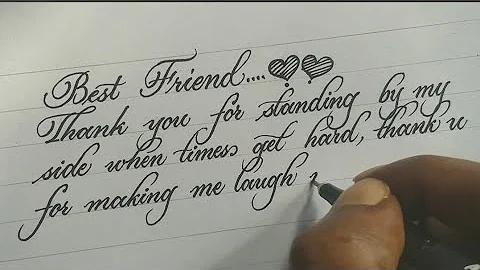 Best Friend....
Thank you for standing by my
side when times get hard, thank u
for making me laugh